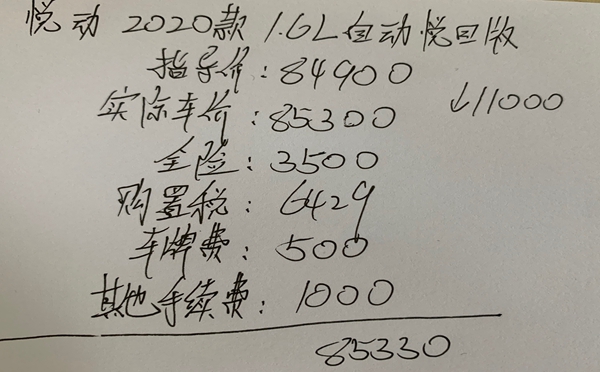 悦动 2020款 1.6L自动悦目版
指导价:84900
实际车价:85300 ↓11000
全险:3500
购置税:6429
车牌费:500
其他手续费:1000
85330